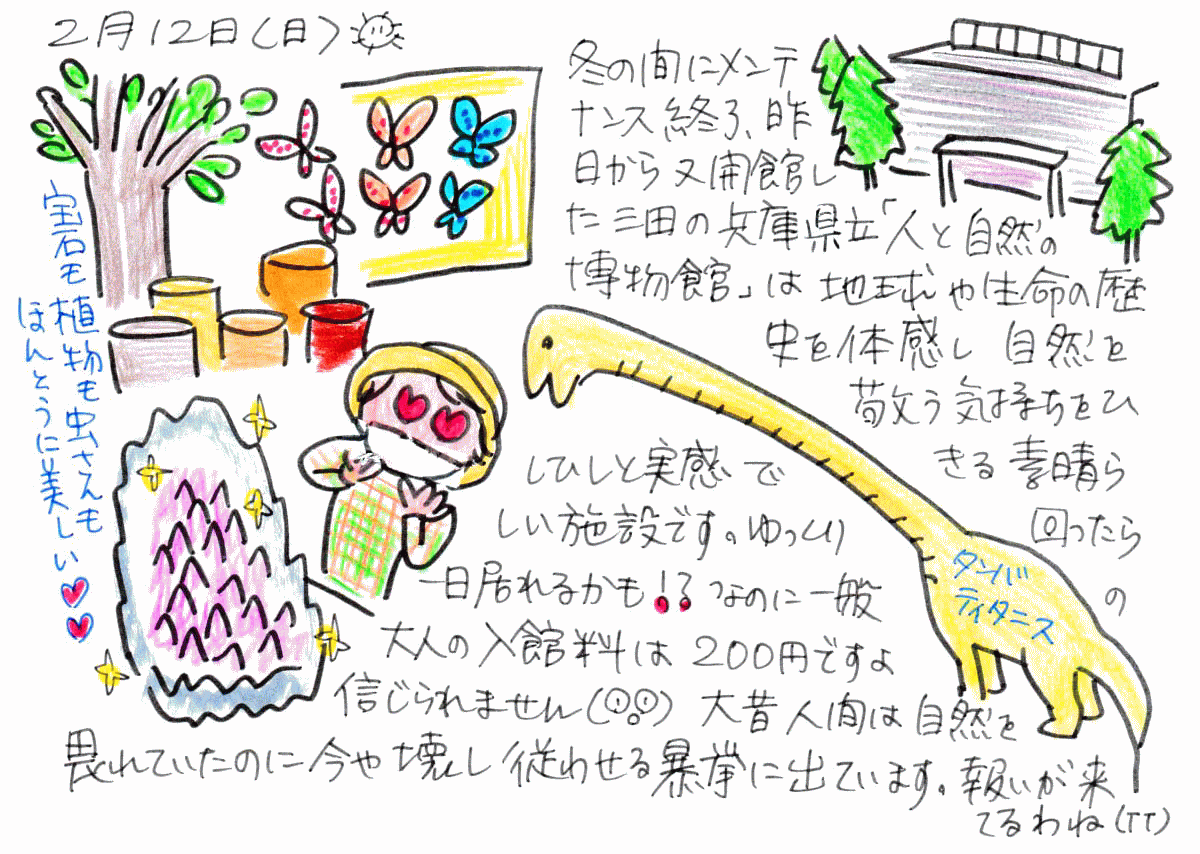 2月12日(日)
冬の間にメンテ
ナンス終了、昨
日から又開館し
た三田の兵庫県立「人と自然の
博物館」は地球や生命の歴
史を体感し 自然を
敬う気持ちをひ
しひしと実感で
きる素晴ら
しい施設です。ゆっくり
回ったら
一日居れるかも!?
なのに一般
の
大人の入館料は200円ですよ
信じられません
大昔人間は自然を
畏れていたのに今や壊し従わせる暴挙に出ています。報いが来
てるわね(TT)
宝石も植物も虫さんも
ほんとうに美しい
タンバ
ティタニス